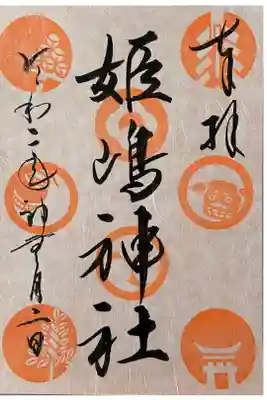 奉拝
姫嶋神社
令和二年月二日